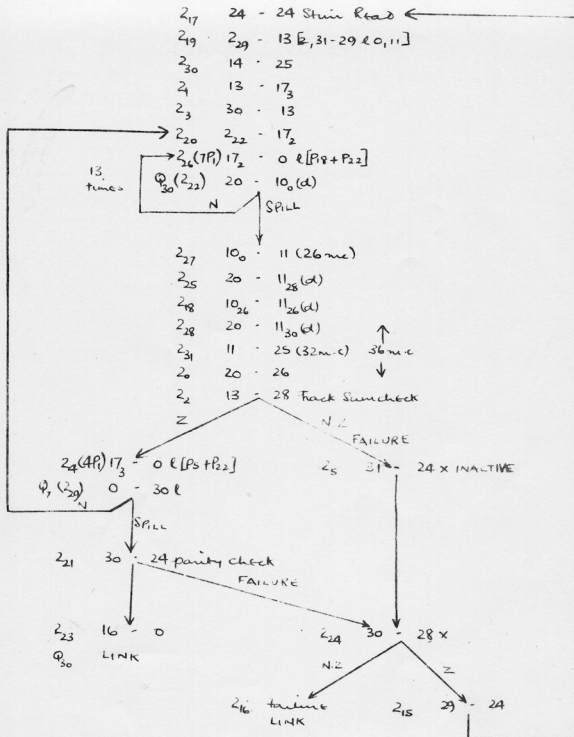 2₁₇ 24 - 24 Stim Read
2₁₉ 2₂₉ - 13 [2,31-29 l 0,11]
2₃₀ 14 - 25
2₁ 13 - 17₃
2₃ 30 - 13
2₂₀ 2₂₂ - 17₂
2₂₆ (7P₁) 17₂ - 0 l [P₁₈ + P₂₂]
13 times
Q₃₀ (2₂₂) 20 - 10₀ (d)
N SPILL
2₂₇ 10₀ - 11 (26 mc)
2₂₅ 20 - 11₂₈ (d)
2₁₈ 10₂₆ - 11₂₆ (d)
2₂₈ 20 - 11₃₀ (d)
2₃₁ 11 - 25 (32 m.c) 36 m.c
2₀ 20 - 26
2₂ 13 - 28 Track Sumcheck
Z N.Z
FAILURE
2₄ (4P₁) 17₃ - 0 l [P₅ + P₂₂]
2₅ 31 - 24 x INACTIVE
Q₇ (2₂₉) 0 - 30 l
N
SPILL
2₂₁ 30 - 24 parity check
FAILURE
2₂₃ 16 - 0
2₂₄ 30 - 28 x
Q₃₀ LINK
N.Z Z
2₁₆ failure
LINK
2₁₅ 29 - 24